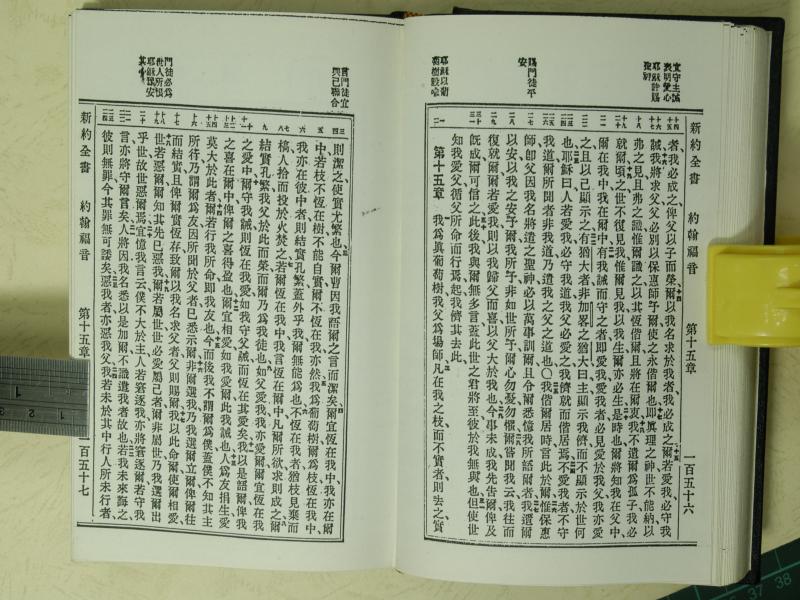 宜守主誡
表明愛心
耶穌許賜
聖神
賜門徒平
安
耶穌以葡
萄樹設喻
新約全書 約翰福音 第十五章 一百五十六
者、我必成之、俾父以子而榮、爾以我名求於我、我必成之、爾若愛我、必守我
誡、我將求父、父必別以保惠師予爾、使之永偕爾也、卽眞理之神、世不能納、以
弗之見、且弗之識、惟爾識之、以其恆偕爾、且將在爾衷、我不遺爾爲孤子、我必
就爾、頃之、世不復見我、惟爾見我、以我生、爾亦必生、是時也、爾將知我在父中、
爾在我中、我在爾中、有我誡而守之者、卽愛我、愛我者、必見愛於我父、我亦愛
之、且以己顯示之、有猶大者、非加畧之猶大、曰、主、顯示我儕、而不顯示於世、何
也、耶穌曰、人若愛我、必守我道、我父必愛之、我儕就而偕居焉、不愛我者、不守
我道、爾所聞者非我道、乃遣我之父之道也、○我偕爾居時、言此於爾、惟保惠
師、卽父因我名將遣之聖神、必以萬事訓爾、且令爾悉憶我所語爾者、我遺爾
以安、以我之安予爾、我所予、非如世所予、爾心勿憂勿懼、爾嘗聞我云、我往而
復就爾、爾若愛我、則以我歸父而喜、以父大於我也、今事未成、我先告爾、俾及
旣成、爾可信之、此後我與爾無多言、蓋此世之君將至、彼於我無與也、但使世
知我愛父、循父所命而行焉、起、我儕其去此、
第十五章 我爲眞葡萄樹、我父爲場師、凡在我之枝而不實者、則去之、實
言門徒宜
與己聯合
門徒必爲
世人所恨
耶穌預安
其心
則潔之、使實尤繁也、今爾曹因我語爾之言而潔矣、爾宜恆在我中、我亦在爾
中、若枝不恆在樹、不能自實、爾不恆在我、亦然、我爲葡萄樹、爾爲枝、恆在我中、
我亦在彼中者、則結實孔繁、蓋外乎我、爾無能爲也、不恆在我者、猶枝見棄而
槁、人拾而投於火焚之、若爾恆在我中、我言恆在爾中、凡爾所欲、求則成之、爾
結實孔繁、我父於此而榮、而爾乃爲我徒也、如父愛我、我亦愛爾、爾宜恆在我
之愛中、爾守我誡、則恆在我愛、如我守父誡、而恆在其愛矣、我以是語爾、俾我
之喜在爾中、俾爾之喜得盈也、爾宜相愛、如我愛爾、此我誡也、人爲友捐生、愛
莫大於此者、爾若行我所命、卽我友也、今而後我不謂爾爲僕、蓋僕不知其主
所行、乃謂爾爲友、因所聞於父者、已悉示爾、非爾選我、乃我選爾、立爾、俾爾往
而結實、且俾爾實恆存、致爾以我名求父者、父則賜爾、我以此命爾、使爾相愛、
世若惡爾、爾知其先已惡我、爾若屬世、世必愛屬己者、爾非屬世、乃我選爾出
乎世、故世惡爾焉、宜憶我言云、僕不大於主、人若窘逐我、亦將窘逐爾、若守我
言、亦將守爾言矣、人將因我名、悉以是加爾、不識遣我者故也、若我未來誨之、
彼則無罪、今其罪無可諉矣、惡我者、亦惡我父、我若未於其中行人所未行者、
新約全書 約翰福音 第十五章 一百五十七
1
2
37 38